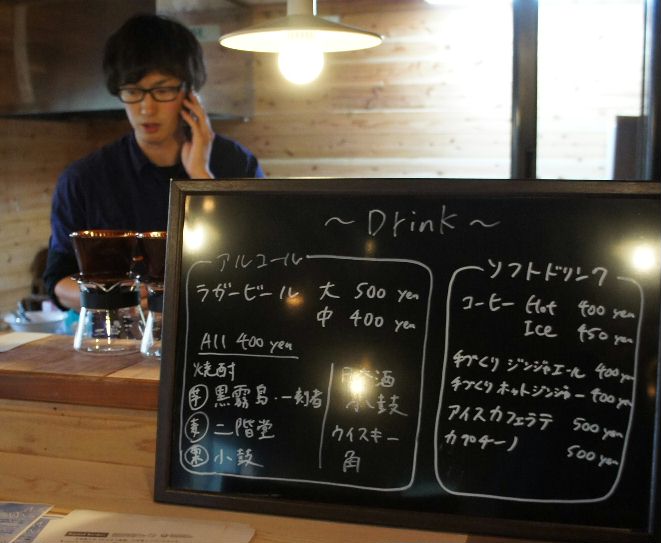 ~Drink~
アルコール
ラガービール 大 500 yen
中 400 yen
All 400 yen
焼酎
芋 黒霧島・一刻者
麦 二階堂
栗 小鼓
酒
小鼓
ウイスキー
角
ソフトドリンク
コーヒー Hot 400 yen
Ice 450 yen
手づくり ジンジャエール 400 yen
手づくり ホットジンジャー 400 yen
アイスカフェラテ 500 yen
カプチーノ 500 yen